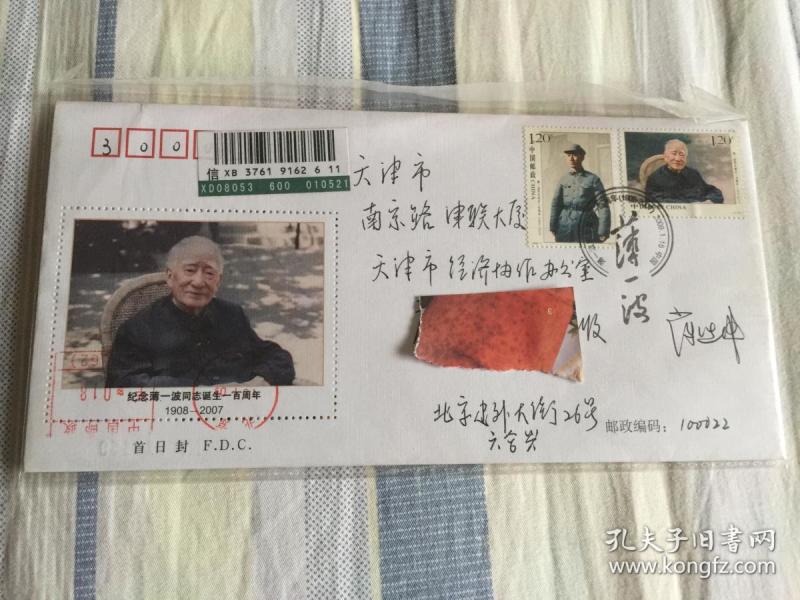 3 0 0 0
信 XB 3761 9162 6 11
XD08053 600 010521
1.20
中国邮政 CHINA
1.20
中国邮政 CHINA
天津市
南京路 津联大厦
天津市 经济协作办公室
收
薄一波
纪念薄一波同志诞生一百周年
1908-2007
018
中国邮政
首日封 F.D.C.
北京建外大街26号
六合兴
邮政编码： 100022
孔夫子旧书网
www.kongfz.com